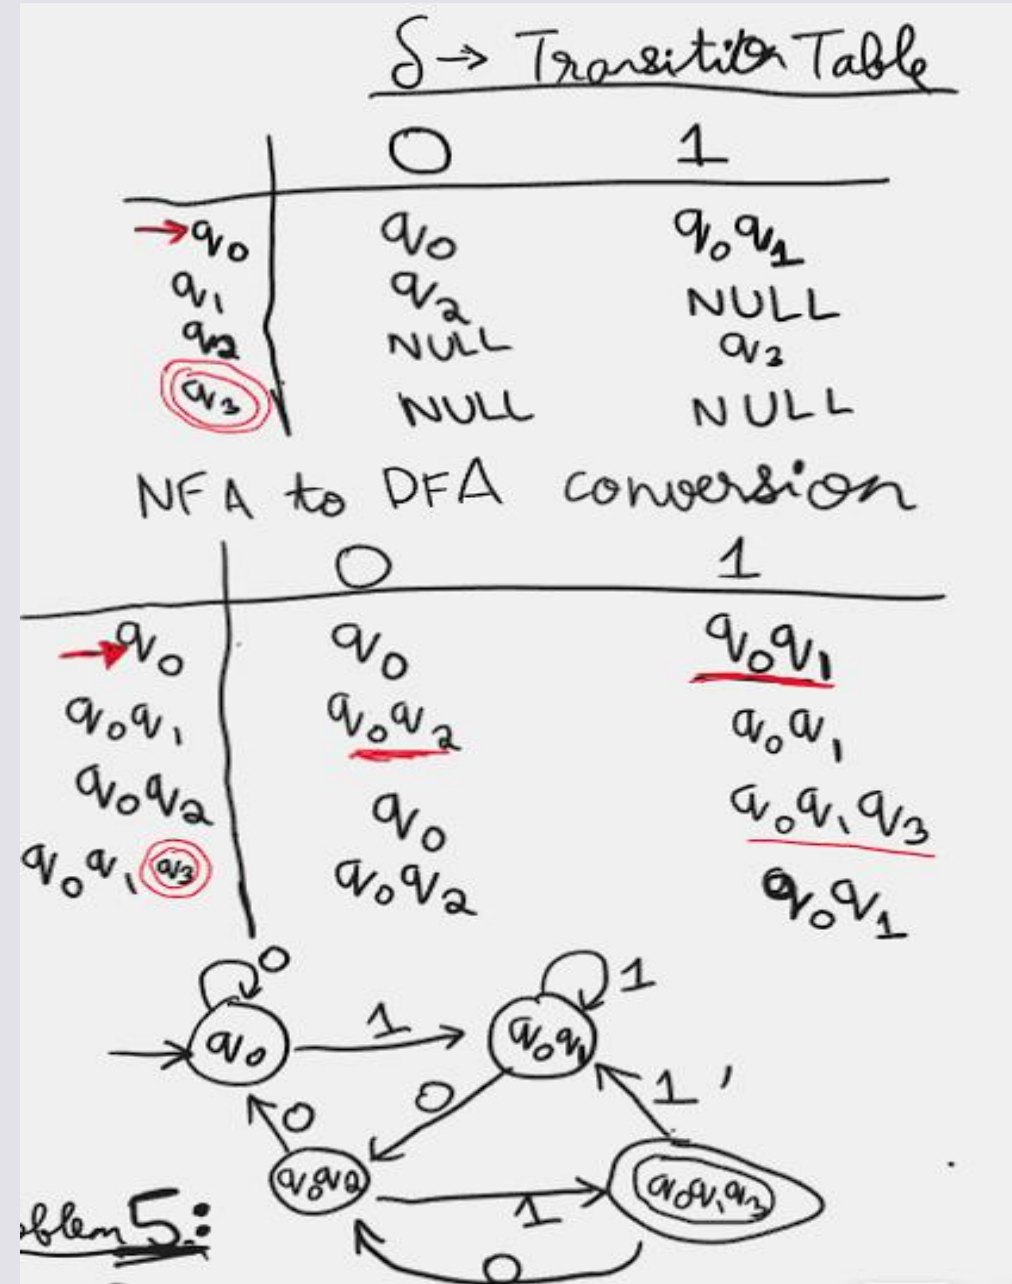 δ → Transition Table
0 1
→q0 q0 q0q1
q1 q2 NULL
q2 NULL q3
q3 NULL NULL
NFA to DFA conversion
0 1
→q0 q0 q0q1
q0q1 q0q2 q0q1
q0q2 q0 q0q1q3
q0q1q3 q0q2 q0q1
0 1
q0 1 q0q1
0 0 1
q0q2 1 q0q1q3
oblem 5:
0